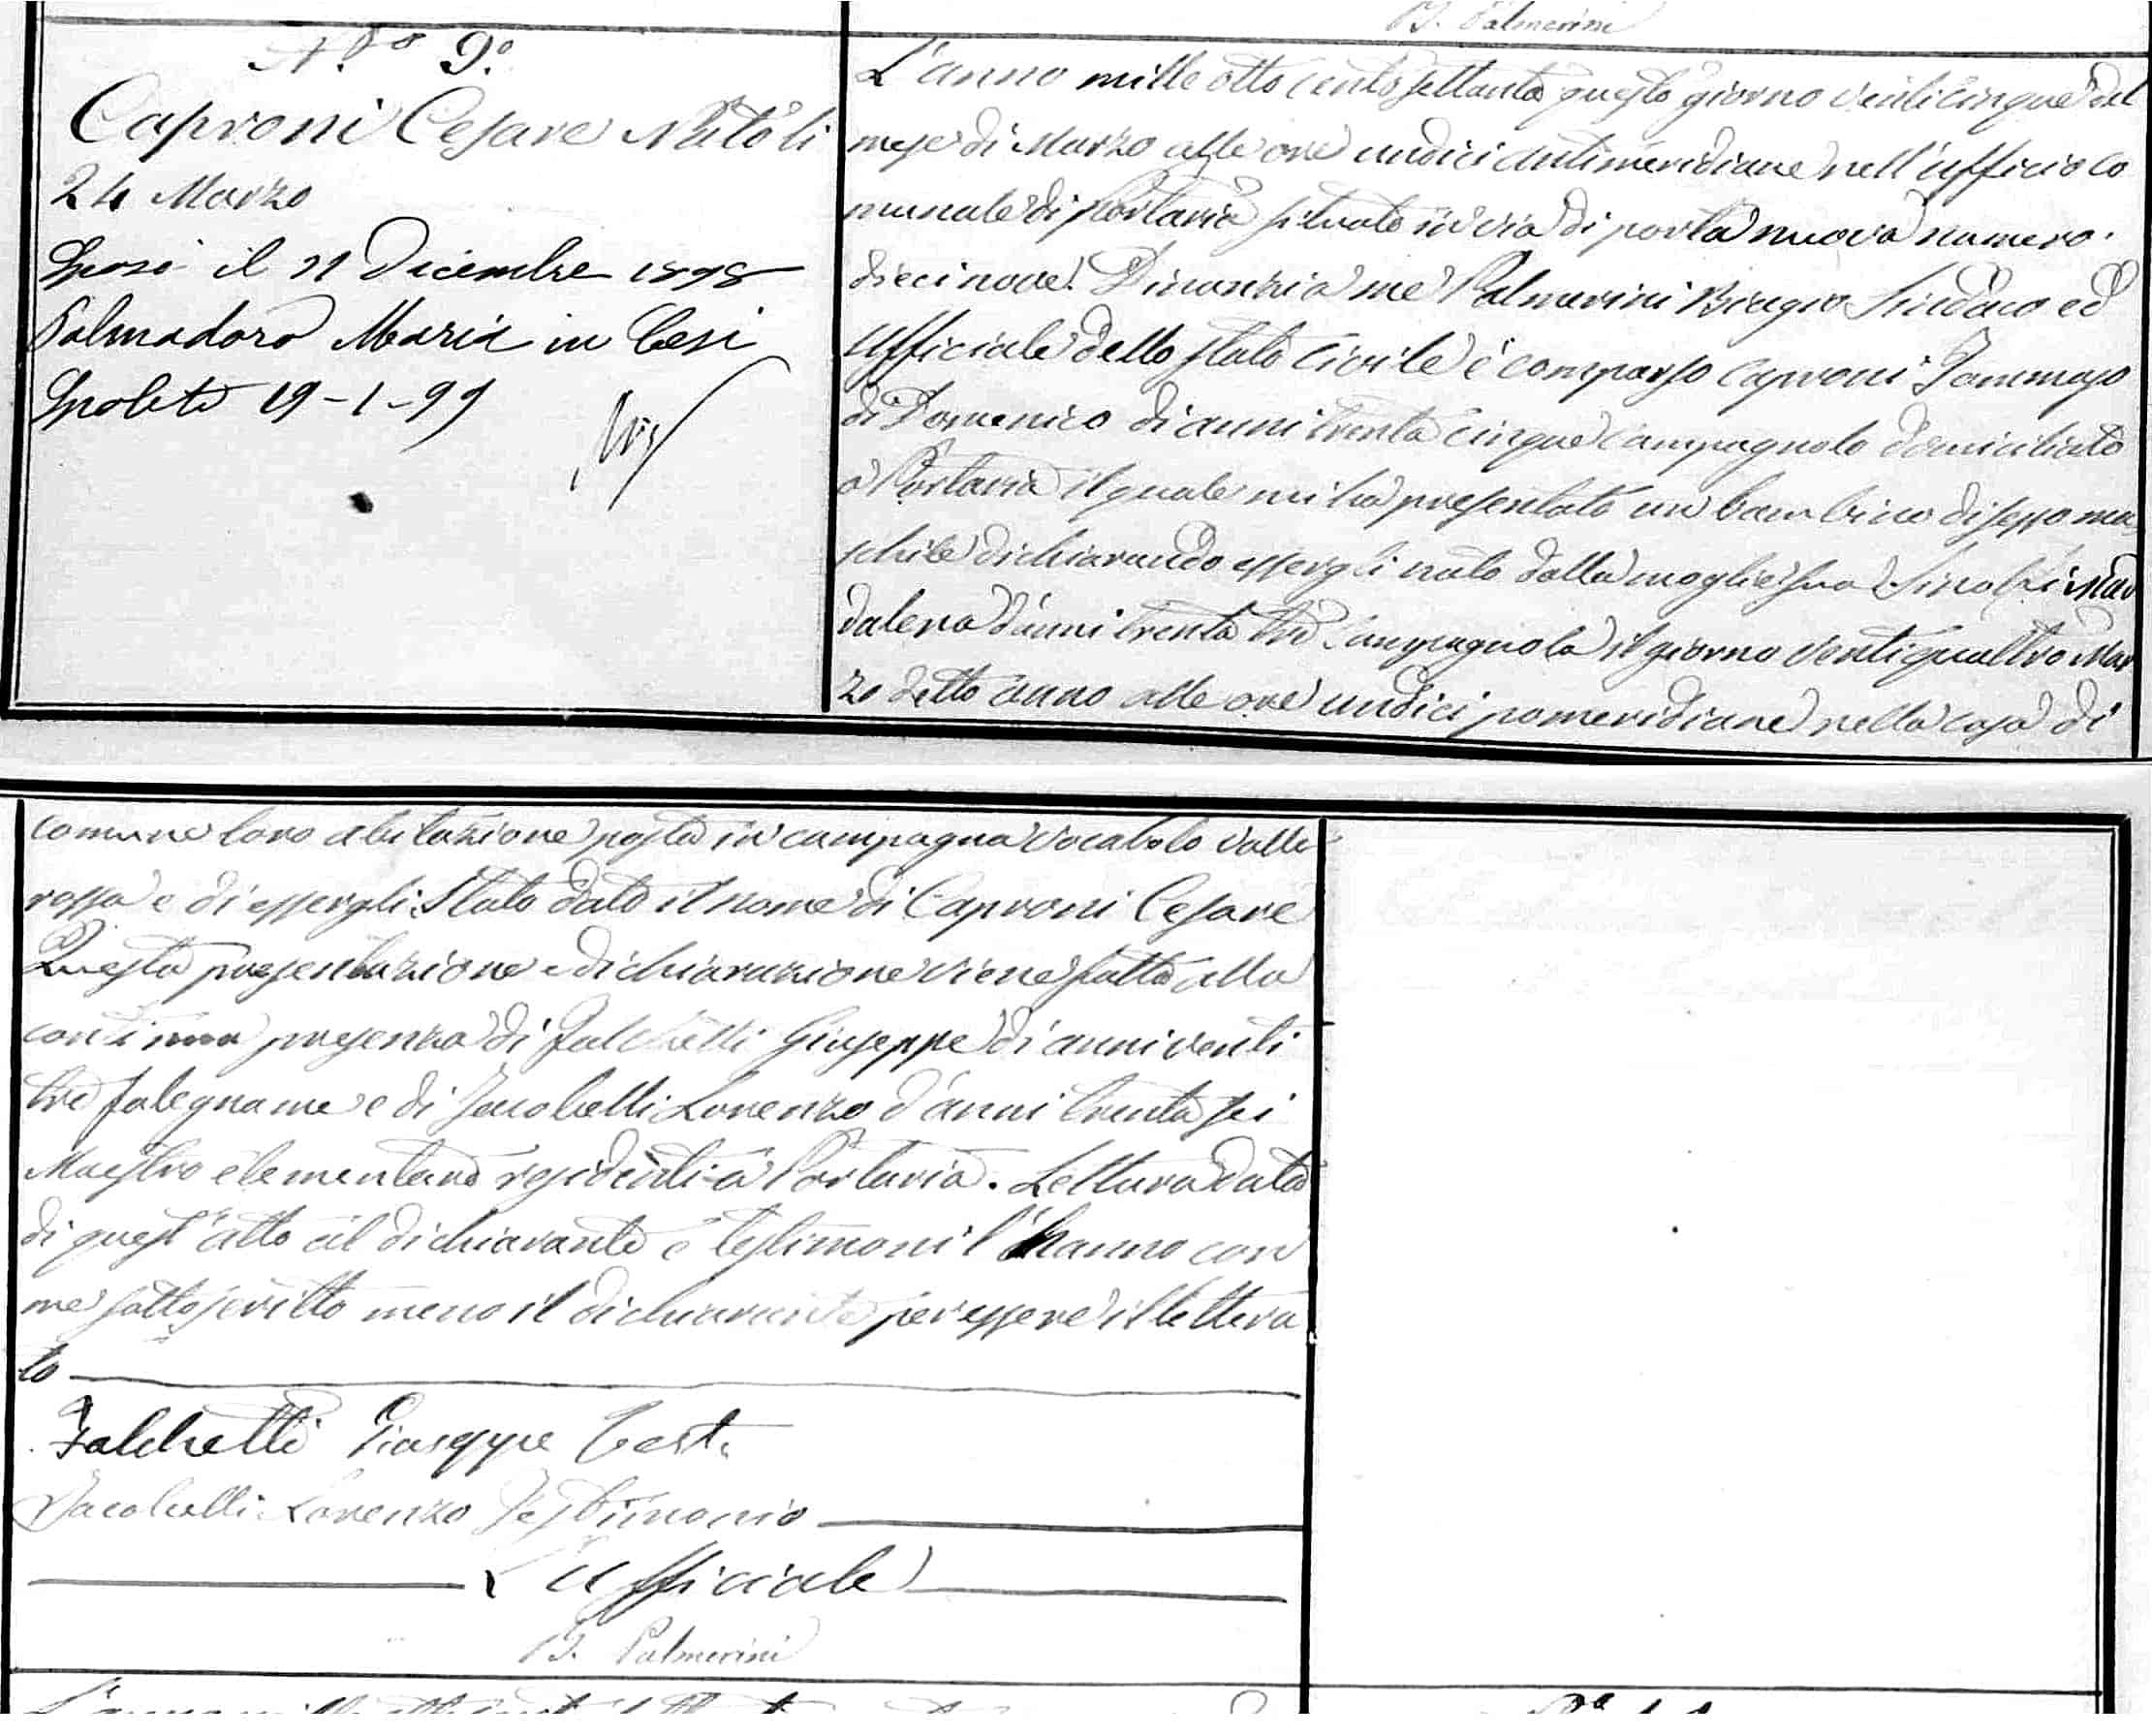 B. Palmerini
N.ro 9.o
Caproni Cesare Nato li
24 Marzo
Sposò il 21 Dicembre 1898
Palmadoro Maria in Cesi
Spoleto 19-1-99
L'anno mille otto cento settanta questo giorno venticinque del
mese di Marzo alle ore undici antimeridiane nell'ufficio co
munale di Portaria situato in via di porta nuova numero.
diecinove. Dinanzi a me Palmerini Biagio Sindaco ed
Ufficiale dello stato civile è comparso Caproni Tommaso
di Domenico di anni trenta cinque campagnolo domiciliato
a Portaria il quale mi ha presentato un bambino di sesso ma
schile dichiarando essergli nato dalla moglie sua Mad
dalena d'anni trenta tre Campagnola il giorno ventiquattro Mar
zo detto anno alle ore undici pomeridiane nella casa di
comune loro abitazione posta in campagna vocabolo valle
rossa e di essergli stato dato il nome di Caproni Cesare
Questa presentazione e dichiarazione viene fatta alla
continua presenza di Falchetti Giuseppe di anni venti
tre falegname e di Jacobelli Lorenzo d'anni trenta sei
Maestro elementare residenti a Portaria. Lettura data
di quest'atto al dichiarante e testimoni l'hanno con
me sottoscritto meno il dichiarante per essere illettera
to
Falchetti Giuseppe Test.
Jacobelli Lorenzo Testimonio
L'ufficiale
B. Palmerini